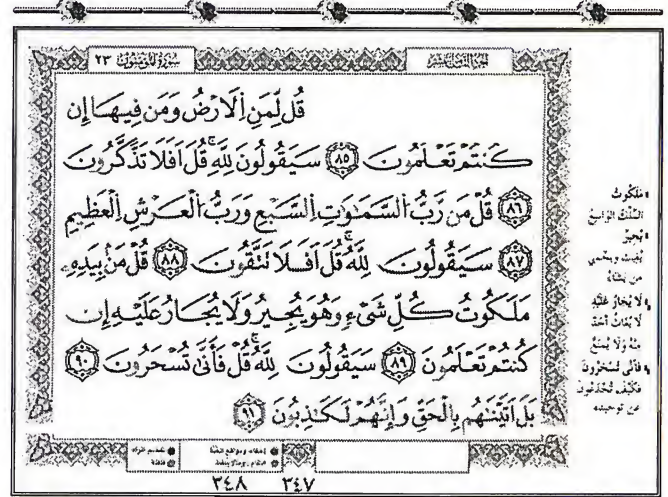 سُورَةُ المُؤْمِنُون ٢٣
قُل لِّمَنِ اِ۬لَارْضُ وَمَن فِيهَا إِن
كُنتُمْ تَعْلَمُونَ ٨٥ سَيَقُولُونَ لِلَّهِ قُلَ اَفَلَا تَذَّكَّرُونَ
٨٦ قُلْ مَن رَّبُّ السَّمَٰوَٰتِ اِ۬لسَّبْعِ وَرَبُّ اُ۬لْعَرْشِ اِ۬لْعَظِيمِ
٨٧ سَيَقُولُونَ لِلَّهِ قُلَ اَفَلَا تَتَّقُونَ ٨٨ قُلْ مَنۢ بِيَدِهِۦ
مَلَكُوتُ كُلِّ شَيْءٍ وَهُوَ يُجِيرُ وَلَا يُجَارُ عَلَيْهِ إِن
كُنتُمْ تَعْلَمُونَ ٨٩ سَيَقُولُونَ لِلَّهِ قُلْ فَأَنَّىٰ تُسْحَرُونَ ٩٠
بَلَ اَتَيْنَٰهُم بِالْحَقِّ وَإِنَّهُمْ لَكَٰذِبُونَ ٩١
مَلَكُوتُ
المُلْكُ الوَاسِعُ
يُجِيرُ
يُغِيثُ ويَحْمِي
من يشاءُ
لَا يُجَارُ عَلَيْهِ
لَا يُغَاثُ أحَدٌ
مِنْهُ وَلَا يُمْنَعُ
فأنّى تُسْحَرُونَ
فكَيْفَ تُخْدَعُونَ
عن توحيده
٣٤٨ ٣٤٧